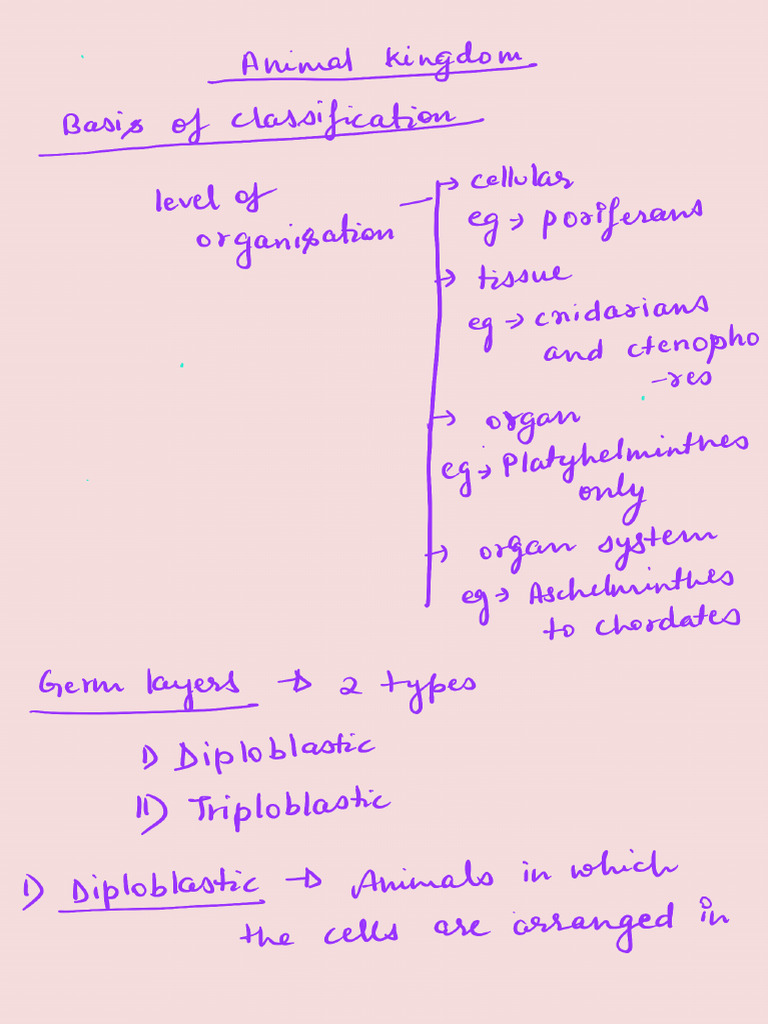 Animal kingdom
Basis of classification
level of
organization
→ cellular
eg → poriferans
→ tissue
eg → cnidarians
and ctenopho
-res
→ organ
eg → Platyhelminthes
only
→ organ system
eg → Aschelminthes
to chordates
Germ layers → 2 types
I) Diploblastic
II) Triploblastic
I) Diploblastic → Animals in which
the cells are arranged in